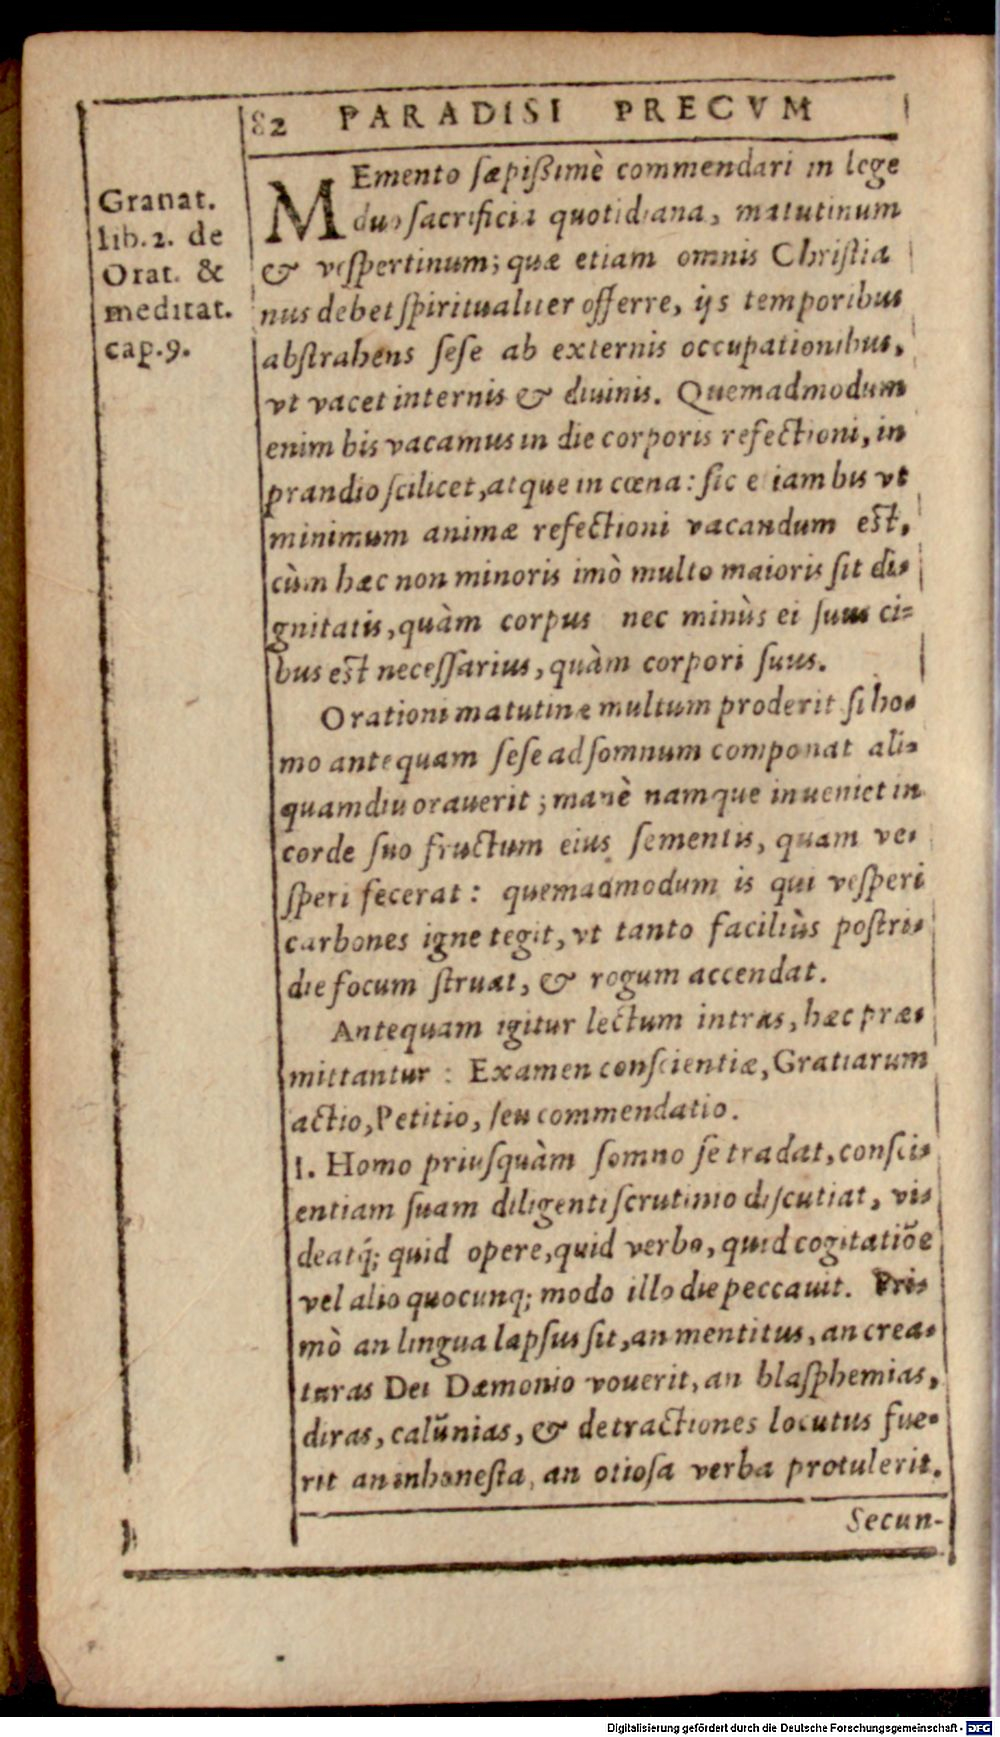 82 PARADISI PRECVM
Granat.
lib.2. de
Orat. &
meditat.
cap.9.
MEmento sæpißimè commendari in lege
duo sacrificia quotidiana, matutinum
& vespertinum; quæ etiam omnis Christia
nus debet spiritualiter offerre, ijs temporibus
abstrahens sese ab externis occupationibus,
vt vacet internis & diuinis. Quemadmodum
enim bis vacamus in die corporis refectioni, in
prandio scilicet, atque in cœna: sic etiam bis vt
minimum animæ refectioni vacandum est,
cùm hæc non minoris imò multo maioris sit di-
gnitatis, quàm corpus nec minùs ei suus ci-
bus est necessarius, quàm corpori suus.
Orationi matutinæ multum proderit si ho-
mo antequam sese ad somnum componat ali-
quamdiu orauerit; manè namque inueniet in
corde suo fructum eius sementis, quam ve-
speri fecerat: quemadmodum is qui vesperi
carbones igne tegit, vt tanto faciliùs postri-
die focum struat, & rogum accendat.
Antequam igitur lectum intras, hæc præ-
mittantur: Examen conscientiæ, Gratiarum
actio, Petitio, seu commendatio.
1. Homo priusquàm somno se tradat, consci-
entiam suam diligenti scrutinio discutiat, vi-
deatq́; quid opere, quid verbo, quid cogitatiõe
vel alio quocunq; modo illo die peccauit. Pri-
mò an lingua lapsus sit, an mentitus, an crea-
turas Dei Dæmonio vouerit, an blasphemias,
diras, calũnias, & detractiones locutus fue-
rit an inhonesta, an otiosa verba protulerit.
Secun-
Digitalisierung gefördert durch die Deutsche Forschungsgemeinschaft - DFG